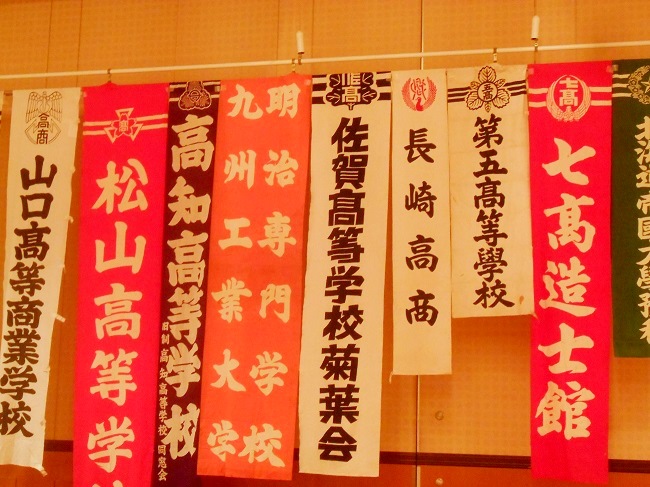 高商
山口高等商業学校
高
松山高等学
高知高等学校
旧制高知高等学校同窓会
明治専門学校
九州工業大学
佐高
佐賀高等学校菊葉会
長崎高商
五高
第五高等學校
七高
七高造士館
北海道帝国大學預科